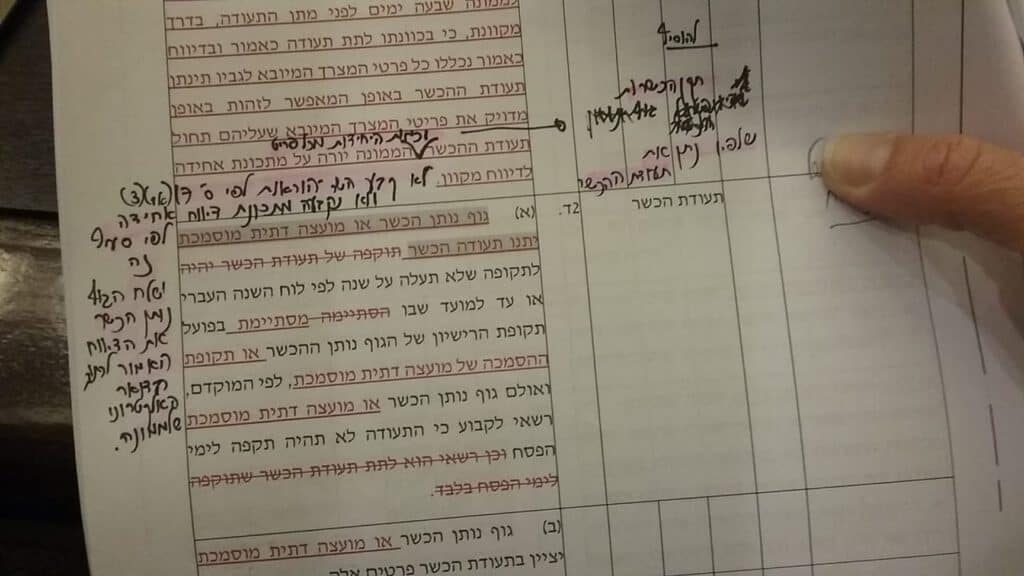 לממונה שבעה ימים לפני מתן התעודה, בדרך
מקוונת, כי בכוונתו לתת תעודה כאמור ובדיווח
כאמור נכללו כל פרטי המצרך המיובא לגביו תינתן
תעודת ההכשר באופן המאפשר לזהות באופן
מדויק את פריטי המצרך המיובא שעליהם תחול
תעודת ההכשר. הממונה יורה על מתכונת אחידה
לדיווח מקוון.
להוסיף
שלפיו נתן את
תעודת ההכשר
לא קבע
ולא נקבעה מתכונת דיווח אחידה
לפי סעיף
זה
ישלח הגוף
נותן הכשר
את הדיווח
האמור
בדואר
אלקטרוני
לממונה.
2ד.
תעודת הכשר
(א) גוף נותן הכשר או מועצה דתית מוסמכת
יתנו תעודת הכשר תוקפה של תעודת הכשר יהיה
לתקופה שלא תעלה על שנה לפי לוח השנה העברי
או עד למועד שבו הסתיימה מסתיימת בפועל
תקופת הרישיון של הגוף נותן ההכשר או תקופת
ההסמכה של מועצה דתית מוסמכת, לפי המוקדם,
ואולם גוף נותן הכשר או מועצה דתית מוסמכת
רשאי לקבוע כי התעודה לא תהיה תקפה לימי
הפסח וכן רשאי הוא לתת תעודת הכשר שתוקפה
לימי הפסח בלבד.
(ב) גוף נותן הכשר או מועצה דתית מוסמכת
יציין בתעודת הכשר פרטים אלה